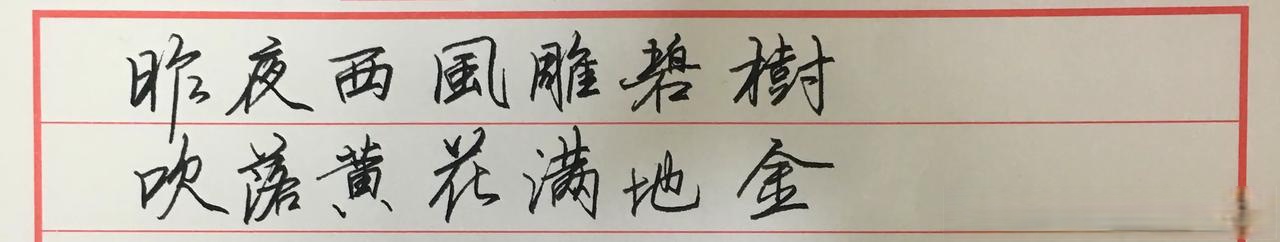 昨夜西風雕碧樹
吹落黄花满地金